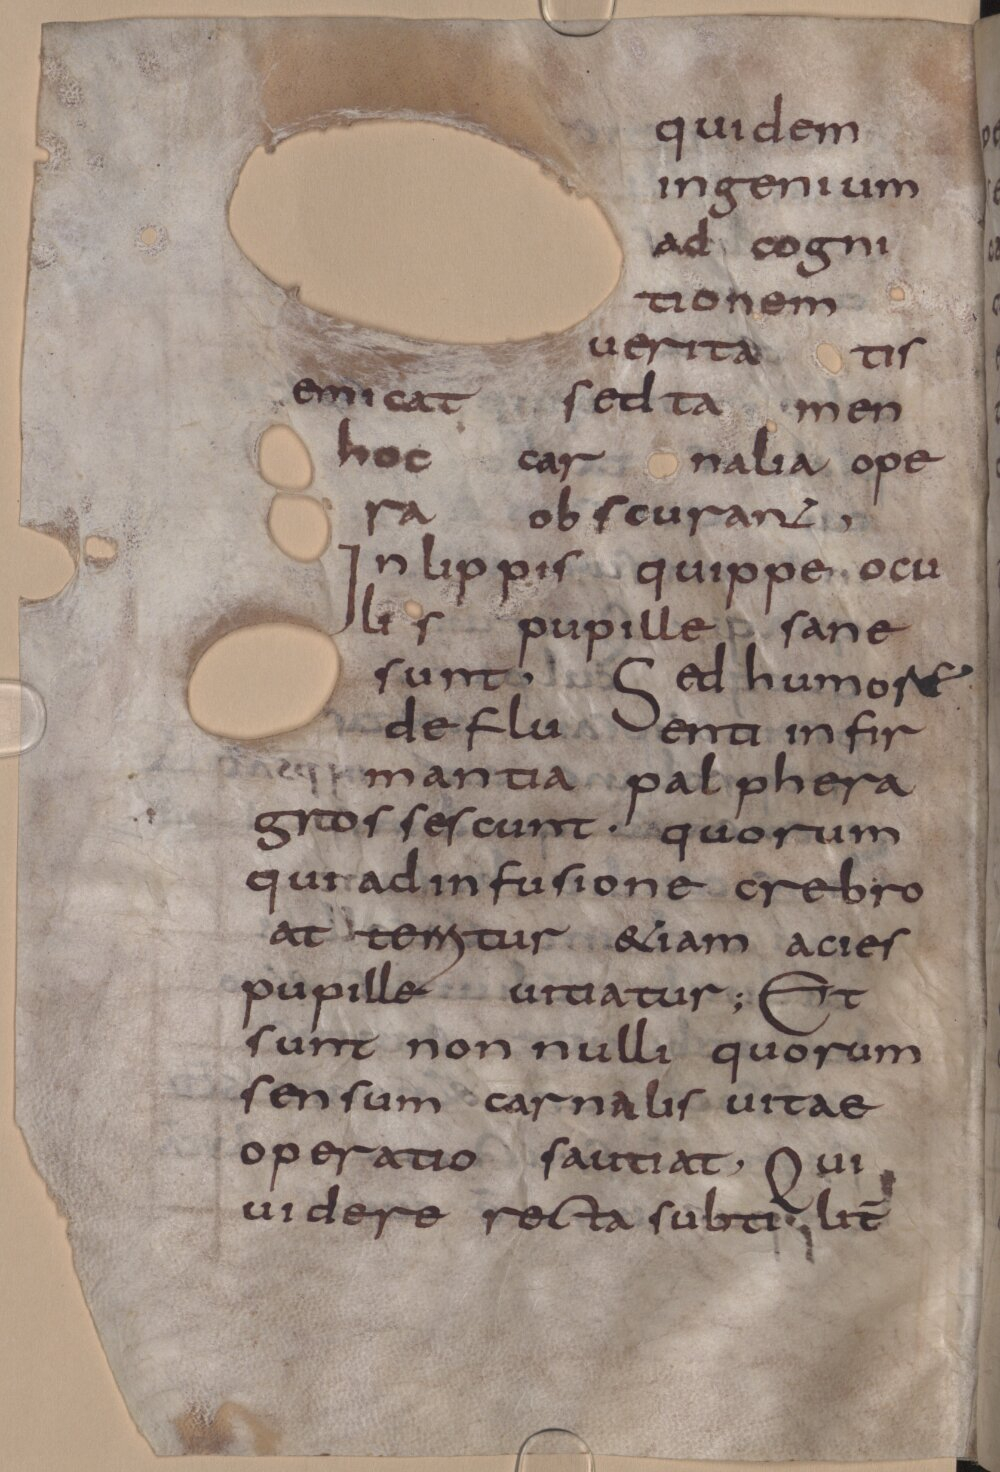 quidem
ingenium
ad cogni
tionem
uerita tis
emicat sed ta men
hoc car nalia ope
ra obscurant,
In lippis quippe ocu
li s pupille sane
sunt, Sed humore
deflu enti infir
mantia palphera
grossescunt. quorum
qui ad infusione crebro
at teritur &iam acies
pupille uitiatur; Et
sunt non nulli quorum
sensum carnalis uitae
operatio sautiat, Qui
uidere recta subti lit̄